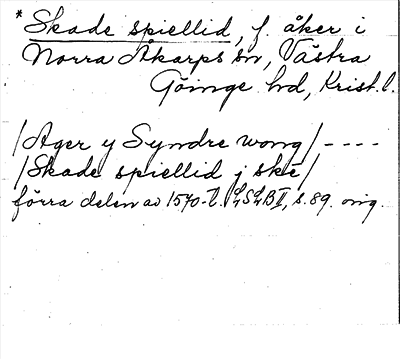 * Skade spiellid, f. åker i
Norra Åkarps sn, Västra
Göinge hd, Krist. l.
/Ager y Syndre wong/ ----
/Skade spiellid j ske/
förra delen av 1570-t. LSLB II, s. 89. orig.